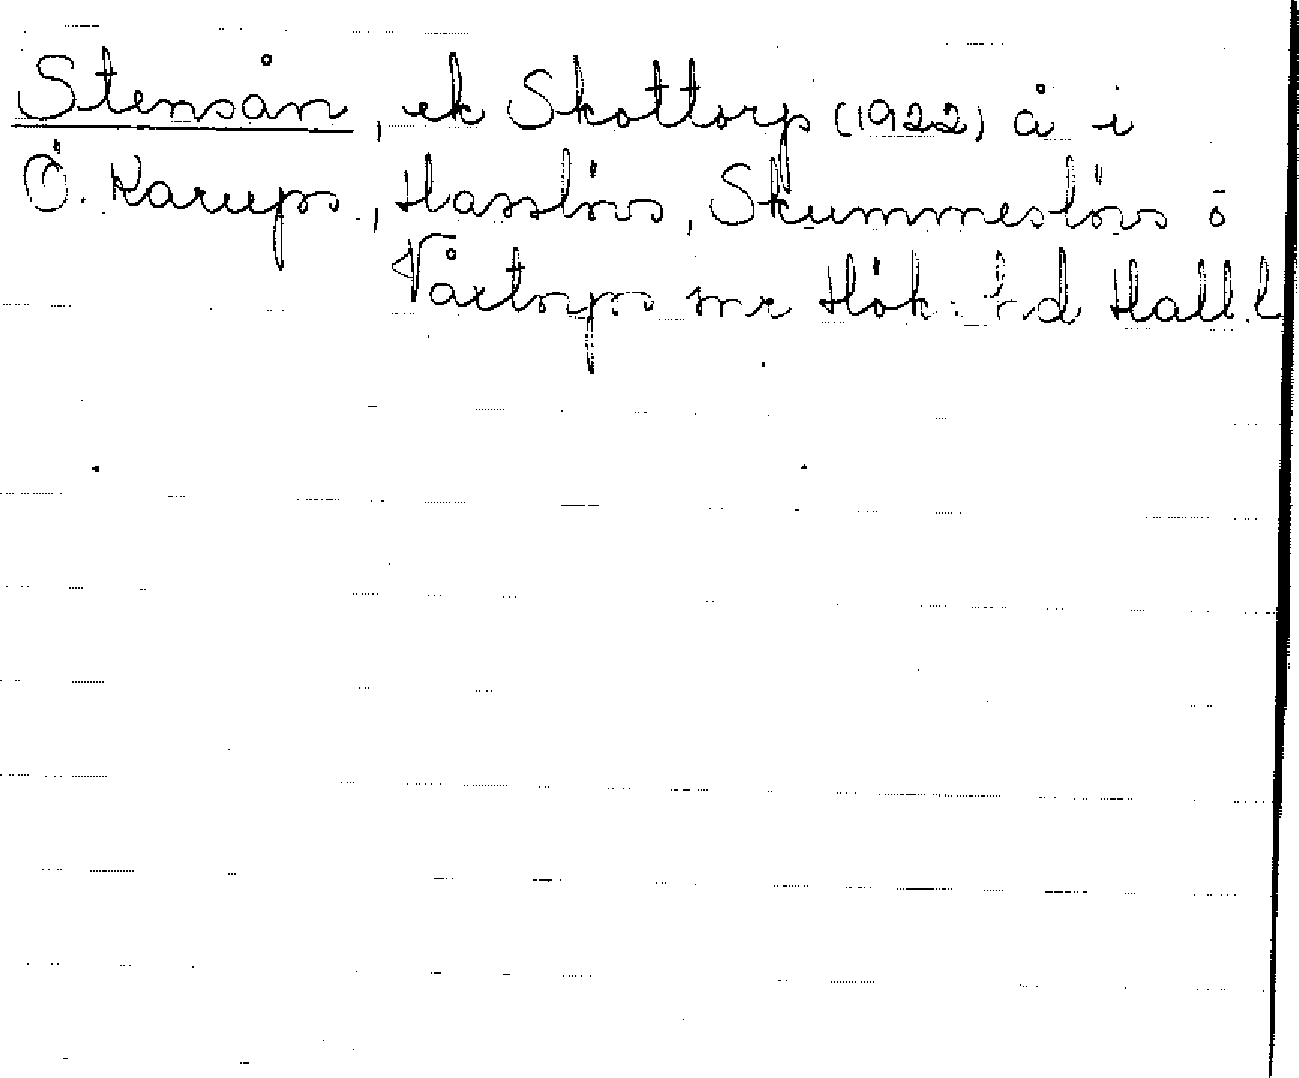 Stensån, ek Skottorp (1922) å i
Ö. Karups, Hasslövs, Skummeslövs o
Våxtorps snr Hök hd Hall. l